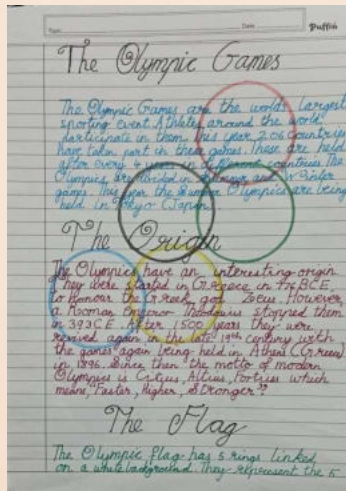 Date
Puffin
The Olympic Games
The Olympic Games are the worlds largest
sporting event Athletes around the world
participate in them this year 206 countries
have taken part in these games. These are held
after every 4 years in different countries The
Olympics are divided in Summer and Winter
games. This year the Summer Olympics are being
held in Tokyo (Japan)
The Origin
The Olympics have an interesting origin
They were started in Greece in 776 BCE,
to honour the Greek god Zeus. However,
a Roman Emperor Theodosius stopped them
in 393 CE. After 1500 years they were
revived again in the late 19th century with
the games again being held in Athens (Greece)
in 1896. Since then the motto of modern
Olympics is Citius, Altius, Fortius which
means, Faster, Higher, Stronger"
The Flag
The Olympic flag has 5 rings linked
on a white background. They represent the 5